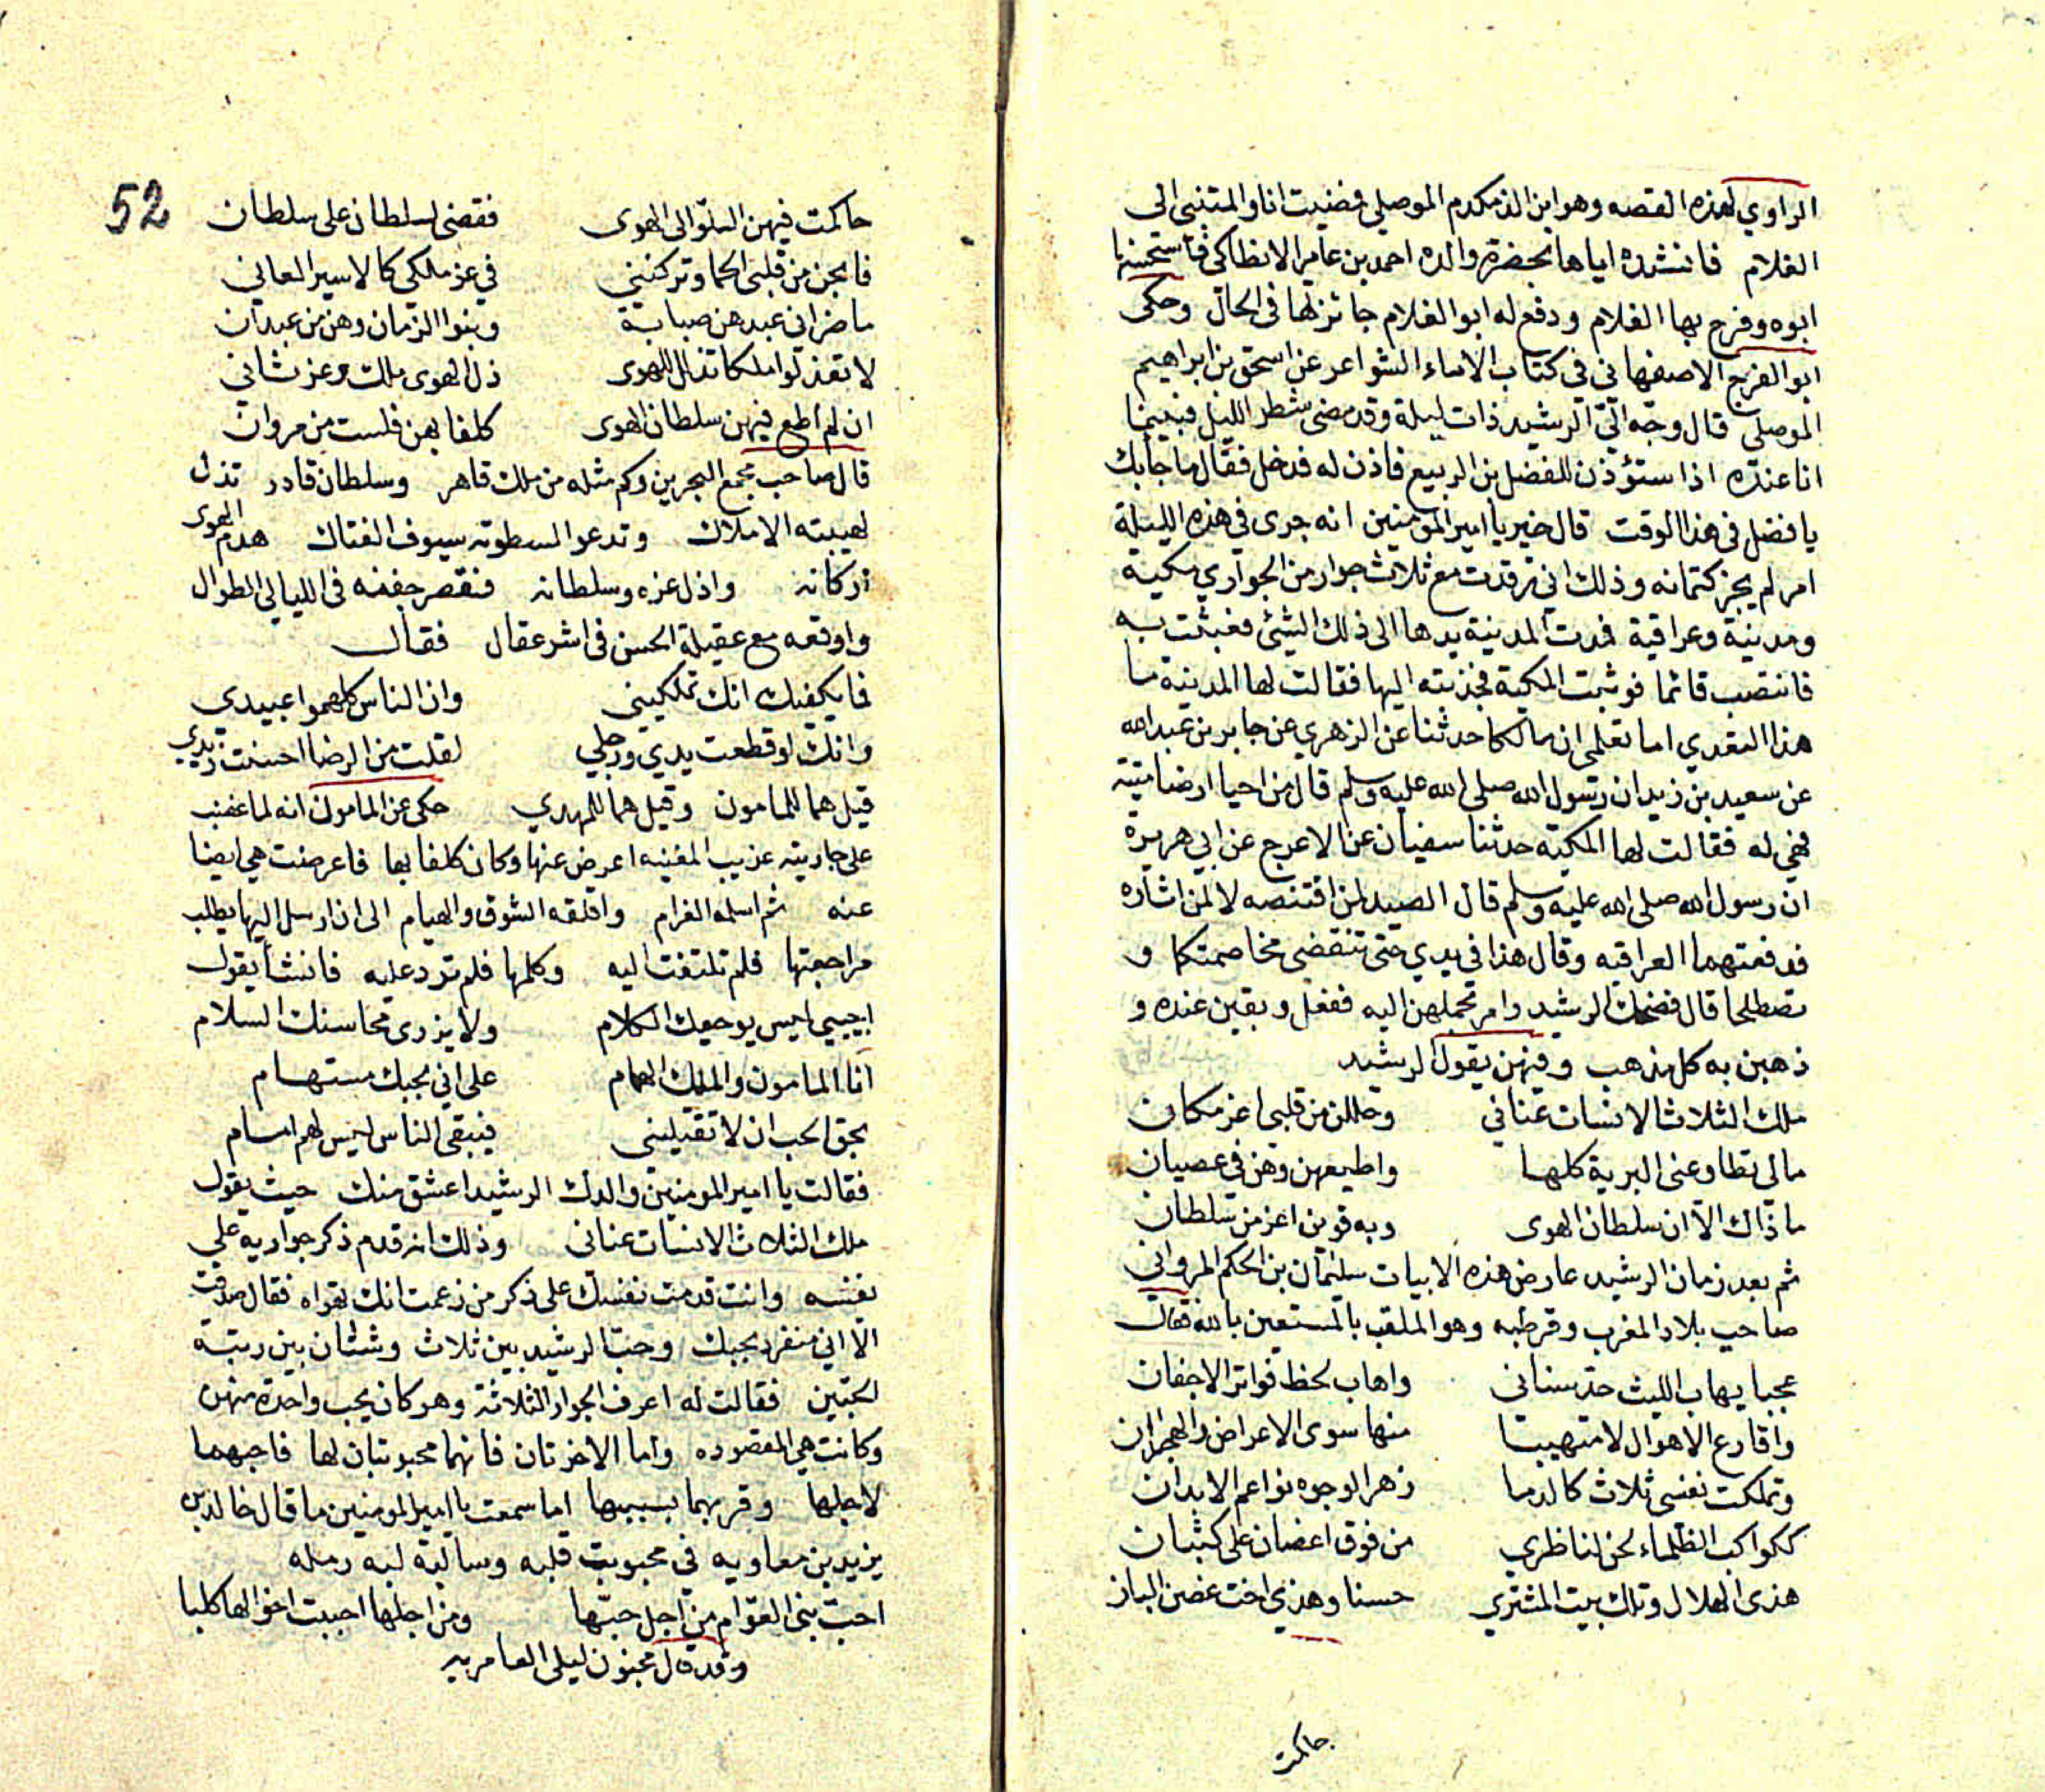 الراوي لهذه القصه وهو ابن الذمكدم الموصلي فمضيت انا والمتنبى الى
الغلام فانشده اياها بحضرة والده احمد بن عامر الانطاكي فاستحسنها
ابوه وفرح بها الغلام ودفع له ابو الغلام جائزتها فى الحال وحكى
ابو الفرج الاصفهاني فى كتاب الاماء الشواعر عن اسحق بن ابراهيم
الموصلي قال وجّه الىّ الرشيد ذات ليلة وقد مضى شطر الليل فبينما
انا عنده اذا ستؤذن للفضل بن الربيع فاذن له فدخل فقال ما جابك
يا فضل فى هذا الوقت قال خير يا امير المومنين انه جرى فى هذه الليلة
امر لم يجز كتمانه وذلك اني رقدت مع ثلاث جوار من الجواري مكية
ومدنية وعراقية فمدت المدنية يدها الى ذلك الشئ فعبثت به
فانتصب قائما فوثبت المكية فجذبته اليها فقالت لها المدنية ما
هذا التعدي اما تعلمي ان مالكا حدثنا عن الزهري عن جابر بن عبد الله
عن سعيد بن زيد ان رسول الله صلى الله عليه وسلم قال من احيا ارضا ميتة
فهي له فقالت لها المكية حدثنا سفيان عن الاعرج عن ابي هريرة
ان رسول الله صلى الله عليه وسلم قال الصيد لمن اقتنصه لا لمن اثاره
فدفعتهما العراقيه وقال هذا فى يدي حتى تنقضى مخاصمتكما و
تصطلحا قال فضحك الرشيد وامر بحملهن اليه ففعل وبقين عنده و
ذهبن به كل مذهب وفيهن يقول الرشيد
ملك الثلاث الانسات عناني وحللن من قلبى اعز مكان
مالى تطاوعنى البرية كلها واطيعهن وهن فى عصيان
ما ذاك الا ان سلطان الهوى وبه قوين اعز من سلطان
ثم بعد زمان الرشيد عارض هذه الابيات سليمان بن الحكم المرواني
صاحب بلاد المغرب وقرطبه وهو الملقب بالمستعين بالله فقال
عجبا يهاب الليث حد سنانى واهاب لحظ فواتر الاجفان
واقارع الاهوال لا متهيبا منها سوى الاعراض والهجران
وتملكت نفسى ثلاث كالدما زهر الوجوه نواعم الابدان
ككواكب الظلماء لحن لناظري من فوق اغصان على كثبان
هذى الهلال وتلك بيت المشتري حسنا وهذي اخت غصن البان
حاكمت
52
حاكمت فيهن السلو الى الهوى فقضى لسلطان على سلطان
فابحن من قلبى الحما وتركننى في عز ملكى كالاسير العاني
ما ضر انى عبدهن صبابة وبنوا الزمان وهن من عبدان
لا تعذلوا ملكا تذلل للهوى ذل الهوى ملك وعز ثاني
ان لم اطع فيهن سلطان الهوى كلفا بهن فلست من مروان
قال صاحب مجمع البحرين وكم مثله من ملك قاهر وسلطان قادر تذل
لهيبته الاملاك وتدعوا لسطوته سيوف الفتاك هدم الهوى
اركانه واذل عزه وسلطانه فنقص جفنه فى الليالي الطوال
واوقعه مع عقيلة الحسن فى اشر عقال فقال
فما يكفيك انك تملكيني وان الناس كلهموا عبيدى
وانك لو قطعت يدي ورجلي لقلت من الرضا احسنت زيدي
قيل هما للمامون وقيل هما للمهدي حكى عن المامون انه لما غضب
على جاريته عزيب المغنيه اعرض عنها وكان كلفا بها فاعرضت هي ايضا
عنه ثم اسلمه الغرام واقلقه الشوق والهيام الى ان ارسل اليها يطلب
مراجعتها فلم تلتفت اليه وكلمها فلم ترد عليه فانشا يقول
اجيبي ليس يوجعك الكلام ولا يزرى محاسنك السلام
انا المامون والملك الهمام على اني بحبك مستهام
بحق الحب ان لا تقتليني فيبقى الناس ليس لهم امام
فقالت يا امير المومنين والدك الرشيد اعشق منك حيث يقول
ملك الثلاث الانسات عنانى وذلك انه قدم ذكر جواريه على
نفسه وانت قدمت نفسك على ذكر من زعمت انك تهواه فقال صدقت
الا اني منفرد بحبك وحب الرشيد بين ثلاث وشتان بين رتبة
الحبين فقالت له اعرف الجوار الثلاثة وهو كان يحب واحدة منهن
وكانت هي المقصوده واما الاخرتان فانهما محبوبتان لها فاحبهما
لاجلها وقربهما بسببها اما سمعت يا امير المومنين ما قال خالد بن
يزيد بن معاويه فى محبوبت قلبه وسالبة لبه رمله
احب بنى العوام من اجل حبها ومن اجلها احببت اخوالها كلبا
وقد قال مجنون ليلى العامريه